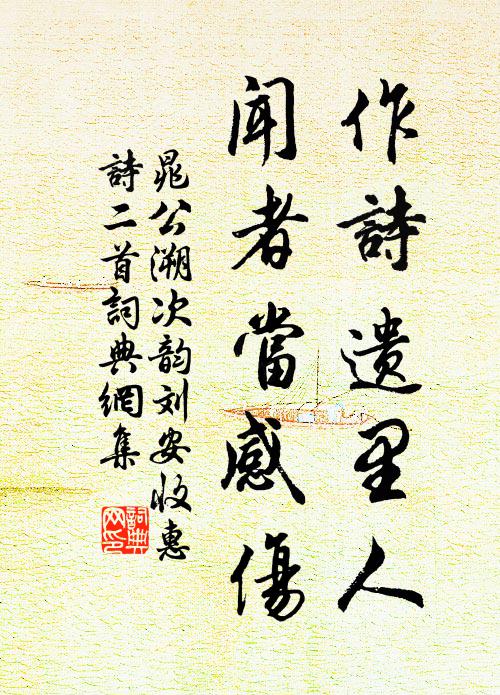 作詩遺里人
聞者當感傷
晁公溯次韵刘安收惠
詩二首詞典網集
詞典
网印